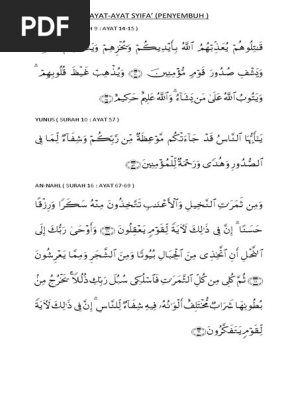 PDF
AYAT-AYAT SYIFA' (PENYEMBUH )
9 : AYAT 14-15 )
قَـٰتِلُوهُمْ يُعَذِّبْهُمُ ٱللَّهُ بِأَيْدِيكُمْ وَيُخْزِهِمْ
وَيَشْفِ صُدُورَ قَوْمٍ مُّؤْمِنِينَ ﴿١٤﴾ وَيُذْهِبْ غَيْظَ قُلُوبِهِمْ ۗ
وَيَتُوبُ ٱللَّهُ عَلَىٰ مَن يَشَآءُ ۗ وَٱللَّهُ عَلِيمٌ حَكِيمٌ ﴿١٥﴾
YUNUS ( SURAH 10 : AYAT 57 )
يَـٰٓأَيُّهَا ٱلنَّاسُ قَدْ جَآءَتْكُم مَّوْعِظَةٌ مِّن رَّبِّكُمْ وَشِفَآءٌ لِّمَا فِى
ٱلصُّدُورِ وَهُدًى وَرَحْمَةٌ لِّلْمُؤْمِنِينَ ﴿٥٧﴾
AN-NAHL ( SURAH 16 : AYAT 67-69 )
وَمِن ثَمَرَٰتِ ٱلنَّخِيلِ وَٱلْأَعْنَـٰبِ تَتَّخِذُونَ مِنْهُ سَكَرًا وَرِزْقًا
حَسَنًا ۗ إِنَّ فِى ذَٰلِكَ لَـَٔايَةً لِّقَوْمٍ يَعْقِلُونَ ﴿٦٧﴾ وَأَوْحَىٰ رَبُّكَ إِلَى
ٱلنَّحْلِ أَنِ ٱتَّخِذِى مِنَ ٱلْجِبَالِ بُيُوتًا وَمِنَ ٱلشَّجَرِ وَمِمَّا يَعْرِشُونَ
﴿٦٨﴾ ثُمَّ كُلِى مِن كُلِّ ٱلثَّمَرَٰتِ فَٱسْلُكِى سُبُلَ رَبِّكِ ذُلُلًا ۚ يَخْرُجُ مِنۢ
بُطُونِهَا شَرَابٌ مُّخْتَلِفٌ أَلْوَٰنُهُۥ فِيهِ شِفَآءٌ لِّلنَّاسِ ۗ إِنَّ فِى ذَٰلِكَ لَـَٔايَةً
لِّقَوْمٍ يَتَفَكَّرُونَ ﴿٦٩﴾